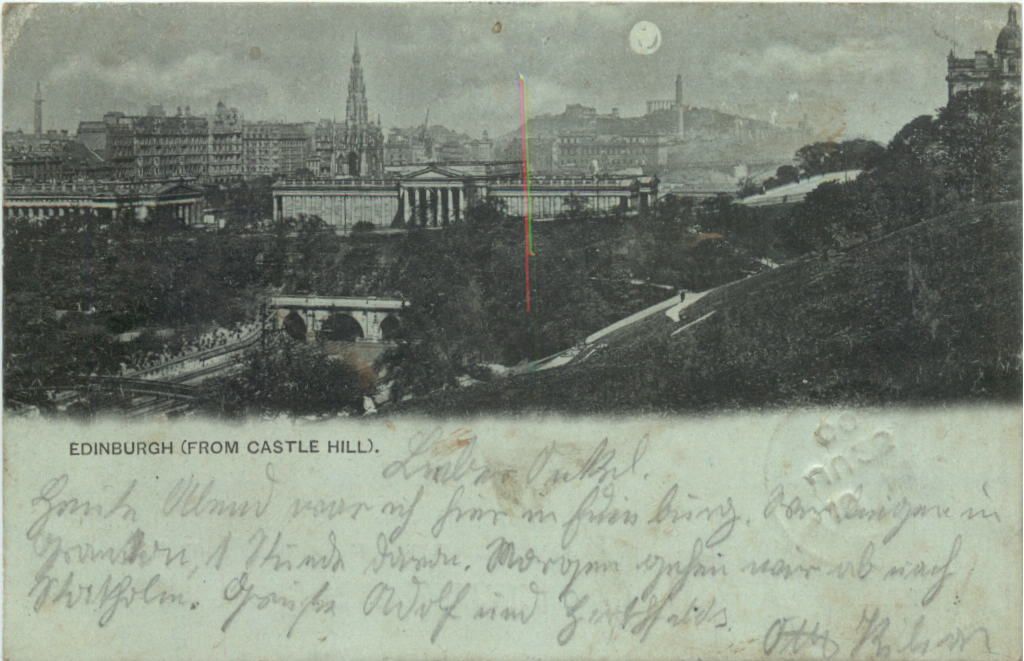 EDINBURGH (FROM CASTLE HILL).
Lieber Onkel.
Heute Abend war ich hier in Edinburg. Wir liegen in
Granton, 1 Stunde davon. Morgen gehen wir ab nach
Stockholm. Grüße Adolf und
Otto